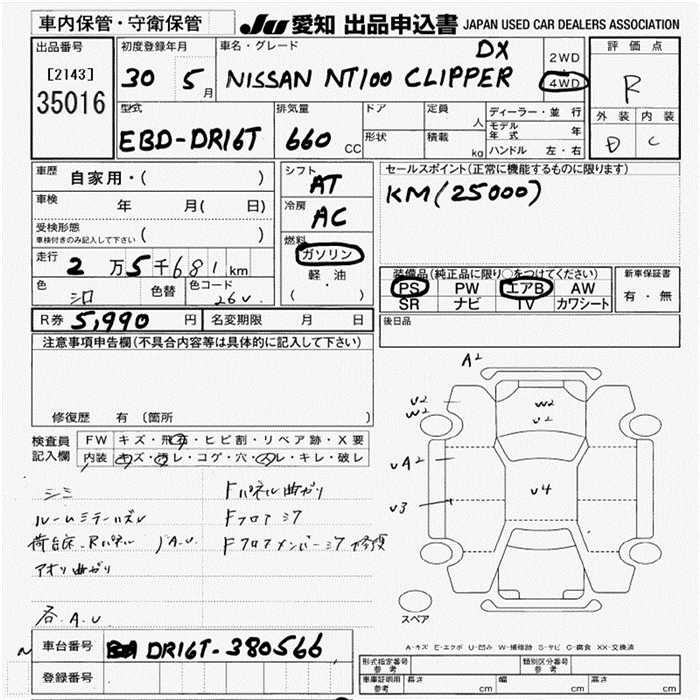 車内保管・守衛保管
JU 愛知 出品申込書 JAPAN USED CAR DEALERS ASSOCIATION
出品番号
[2143]
35016
初度登録年月
30 5月
車名・グレード
DX
NISSAN NT100 CLIPPER
2WD
4WD
評価点
R
外装 内装
D C
型式
EBD-DR16T
排気量
660 CC
ドア
形状
定員 人
積載 kg
ディーラー・並行
モデル年式 年
ハンドル 左・右
車歴
自家用・( )
車検 年 月( 日)
受検形態
車検付きのみ記入して下さい ( )
走行
2万5千681km
色 シロ 色替 色コード 26U
シフト
AT
冷房
AC
燃料
ガソリン
軽油
( ・ )
セールスポイント(正常に機能するものに限ります)
KM(25000)
装備品(純正品に限り○をつけてください)
PS PW エアB AW
SR ナビ TV カワシート
新車保証書
有・無
R券 5,990円 名変期限 月 日
後日品
注意事項申告欄(不具合内容等は具体的に記入して下さい)
修復歴 有〔箇所
検査員記入欄
FW キズ・飛石・ヒビ割・リペア跡・X要
内装 キズ・汚レ・コゲ・穴・スレ・キレ・破レ
シミ
Fパネル曲ガリ
ルームミラーハズレ
Fフロアミア
荷台床、Rパネル )A.U.
Fフロアメンバーミア修復
アオリ曲ガリ
各A.U
A2
U2
W2
W2
U2
UA2
U3
U4
スペア
A-キズ E-エクボ U-凹み W-補修跡 S-サビ C-腐食 XX-交換済
車台番号 DR16T-380566
登録番号
形式指定番号 参考
類別区分番号 参考
車庫証明用 参考 長さ cm 幅 cm 高さ cm